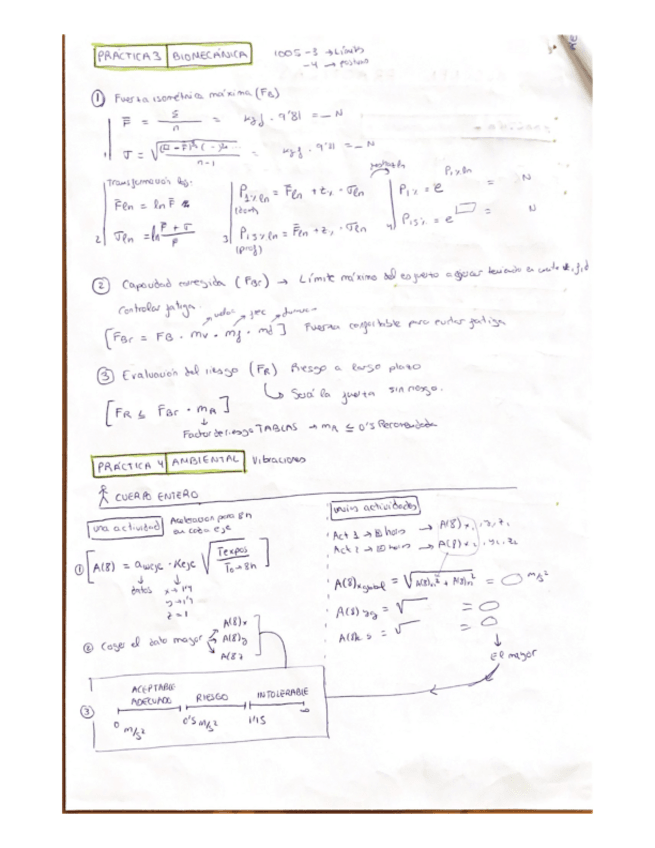 PRÁCTICA 3 BIOMECÁNICA 1005-3 → Límits
-4 →
① Fuerza isométrica máxima (FB)
F̄ = Σ/n = kgf · 9'81 = _ N
kgf · 9'81 = _ N
n-1
Transformación log.
F̄ln = ln F̄
2 σln = ln (F̄ + σ)/F̄
3 P1%ln = F̄ln + zx · σln
P15%ln = F̄ln + zx · σln
(prof)
4 P1% = e^P1%ln = N
P15% = e = N
② Capacidad corregida (FBr) → Límite máximo del esfuerzo a ejercer teniendo en cuenta v, f, d
controlar fatiga.
[FBr = FB · mv · mf · md] Fuerza confortable para evitar fatiga
③ Evaluación del riesgo (FR) Riesgo a largo plazo
↳ Será la fuerza sin riesgo.
[FR ≤ FBr · mR]
Factor de riesgo TABLAS → mR ≤ 0'5 Recomendada
PRÁCTICA 4 AMBIENTAL Vibraciones
CUERPO ENTERO
una actividad Aceleración para 8h
en cada eje
① [A(8) = aweje · Keje √(Texpos/To→8h)]
datos x→1'4
y→1'4
z=1
② Coger el dato mayor A(8)x
A(8)y
A(8)z
③ ACEPTABLE
ADECUADO RIESGO INTOLERABLE
0 m/s² 0'5 m/s² 1'15 ∞
varias actividades
Act 1 → horas → A(8)x1, y1, z1
Act 2 → horas → A(8)x2, y2, z2
A(8)xglobal = √(A(8)x1² + A(8)x2²) = m/s²
A(8)yg = √ =
=
↓
el mayor